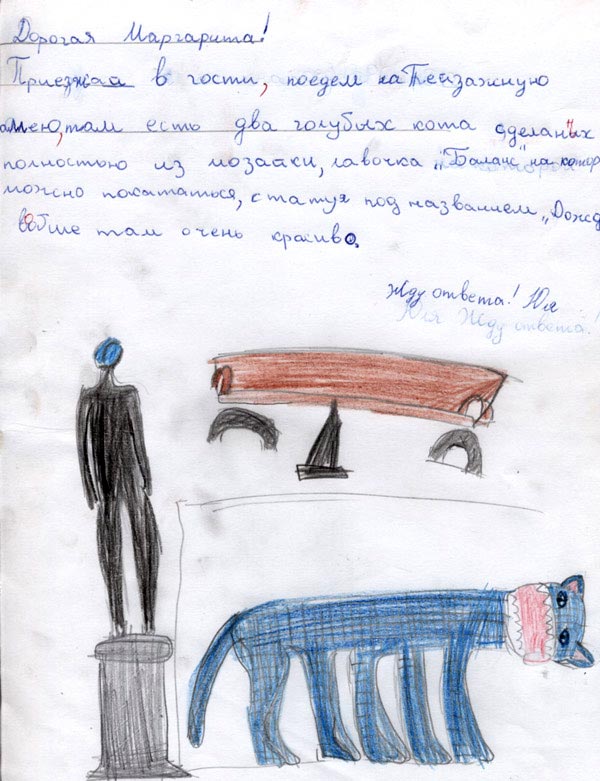 Дорогая Маргарита!
Приезжай в гости, поедем на Пейзажную
алею, там есть два голубых кота сделаных
полностью из мозайки, лавочка „Баланс" на котор
можно покататься, статуя под названием „Дожд
вобще там очень красиво.
Жду ответа! Юля
Юля Жду ответа!